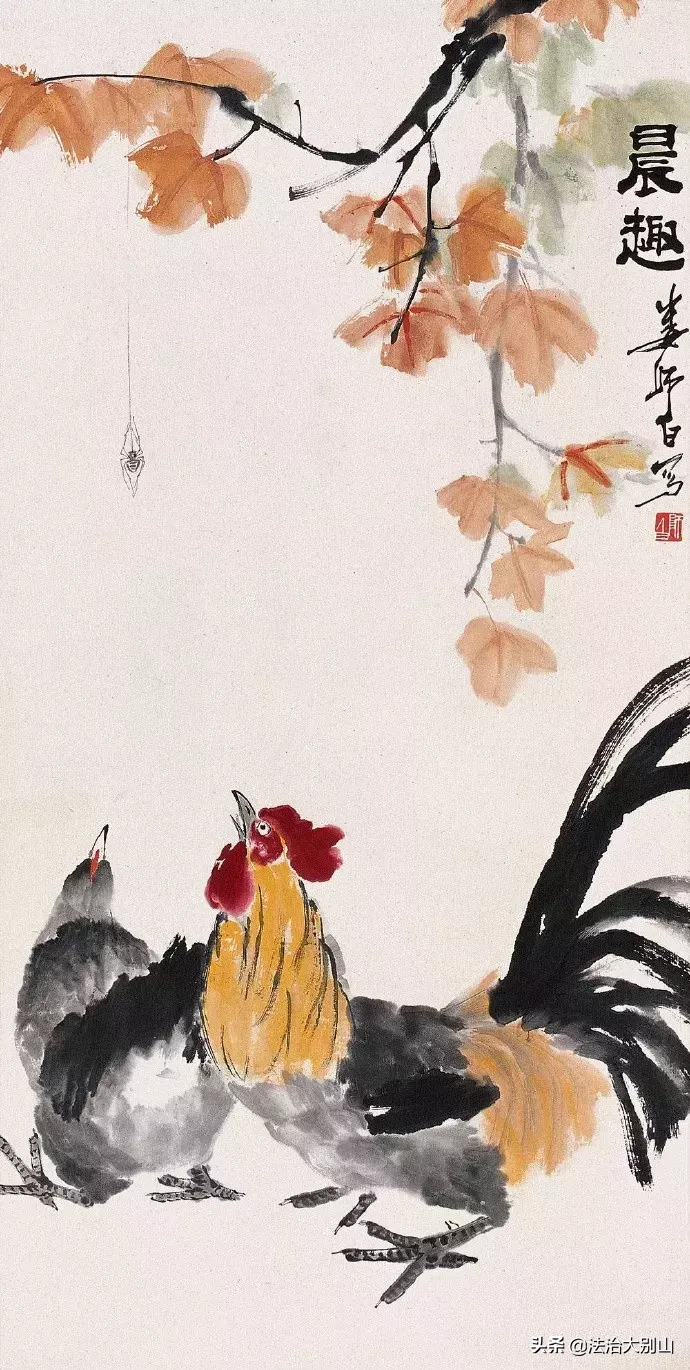 晨趣
娄师白写
头条 @法治大别山